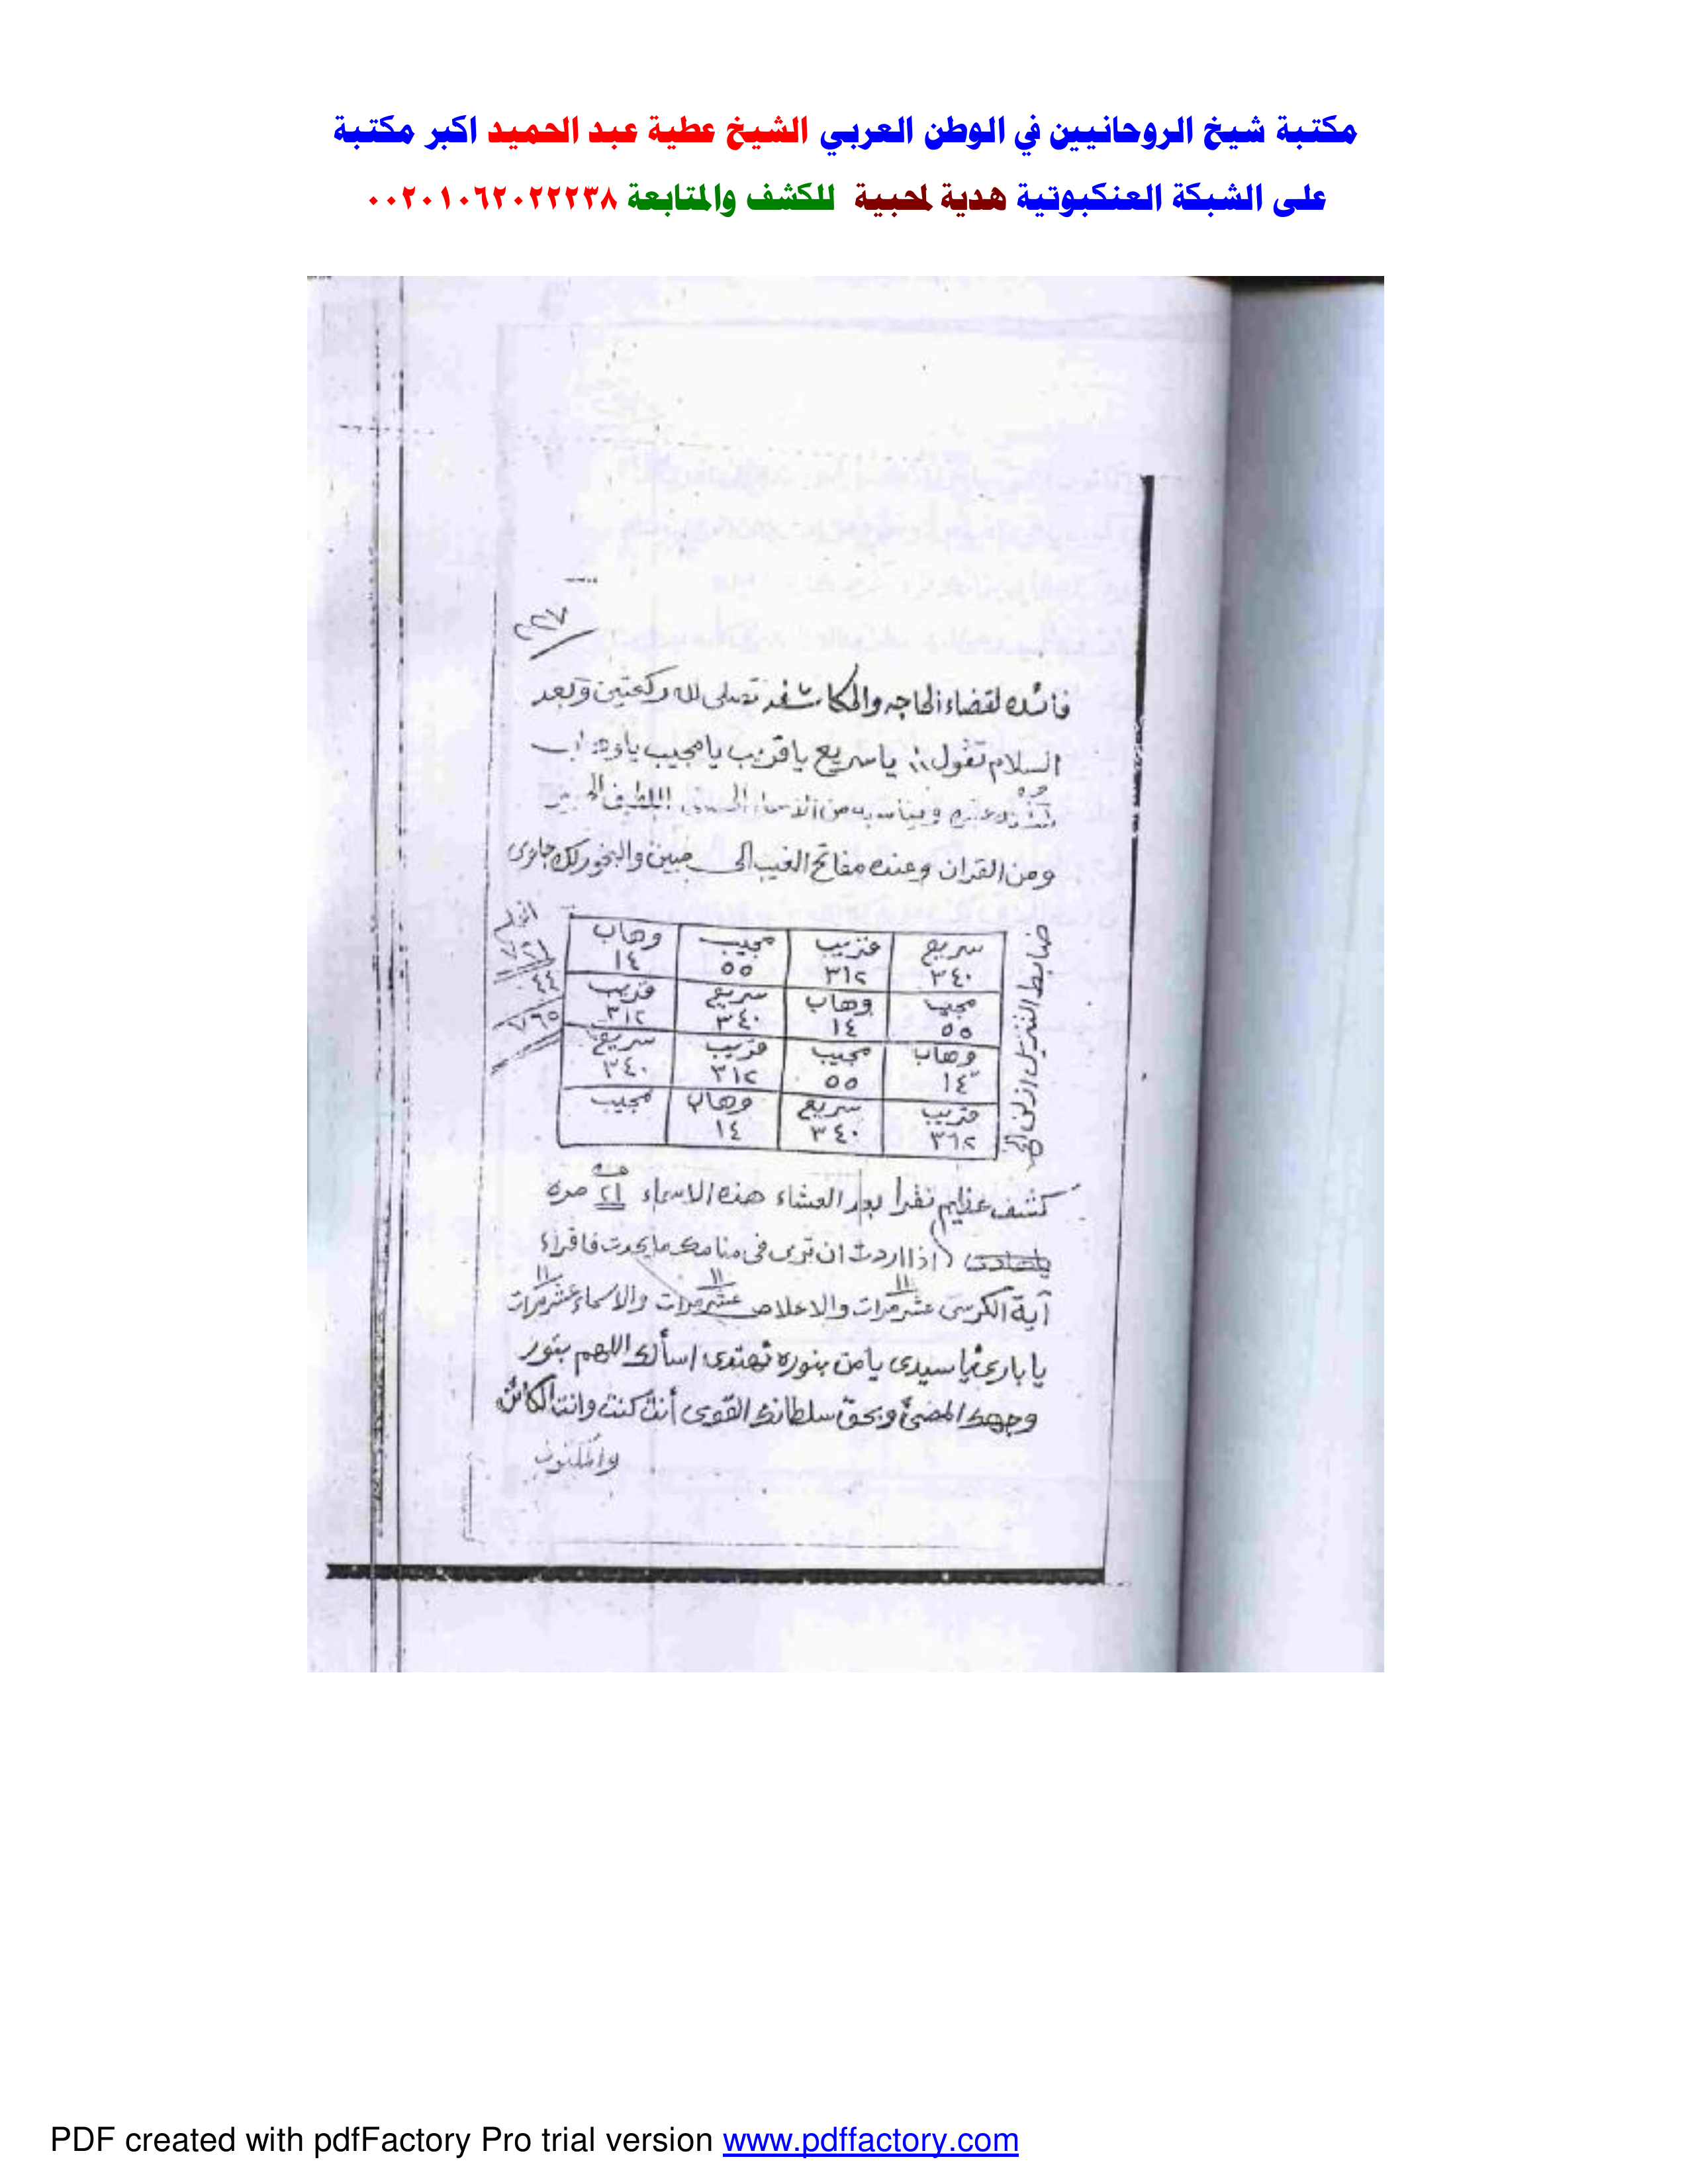 مكتبة شيخ الروحانيين في الوطن العربي الشيخ عطية عبد الحميد اكبر مكتبة
على الشبكة العنكبوتية هدية لمحبية للكشف والمتابعة ٠٠٢٠١٠٦٢٠٢٢٢٣٨
٢٢٧
فائده لقضاء الحاجه والمكاشفه تصلى لله ركعتين وبعد
السلام تقول يا سريع يا قريب يا مجيب يا وهاب
من الاسماء اللطيف
ومن القران وعنده مفاتح الغيب الى مبين والبخور لك جاوى
سريع ٣٤٠ قريب ٣١٢ مجيب ٥٥ وهاب ١٤
مجيب ٥٥ وهاب ١٤ سريع ٣٤٠ قريب ٣١٢
وهاب ١٤ مجيب ٥٥ قريب ٣١٢ سريع ٣٤٠
قريب ٣٦٢ سريع ٣٤٠ وهاب ١٤ مجيب
ضابط التنزيل
٧٦٥
كشف عظيم تقرأ بعد العشاء هذه الاسماء ٢١ مره
اذا اردت ان ترى فى منامك ما يحدث فاقراء
آية الكرسى عشر مرات والاخلاص عشر مرات والاسماء عشر مرات
١١ ١١ ١١
يا بارئ يا سيدى يا من بنوره نهتدى اسألك اللهم بنور
وجهك المضئ وبحق سلطانك القوى أنت كنت وانت الكائن
PDF created with pdfFactory Pro trial version www.pdffactory.com